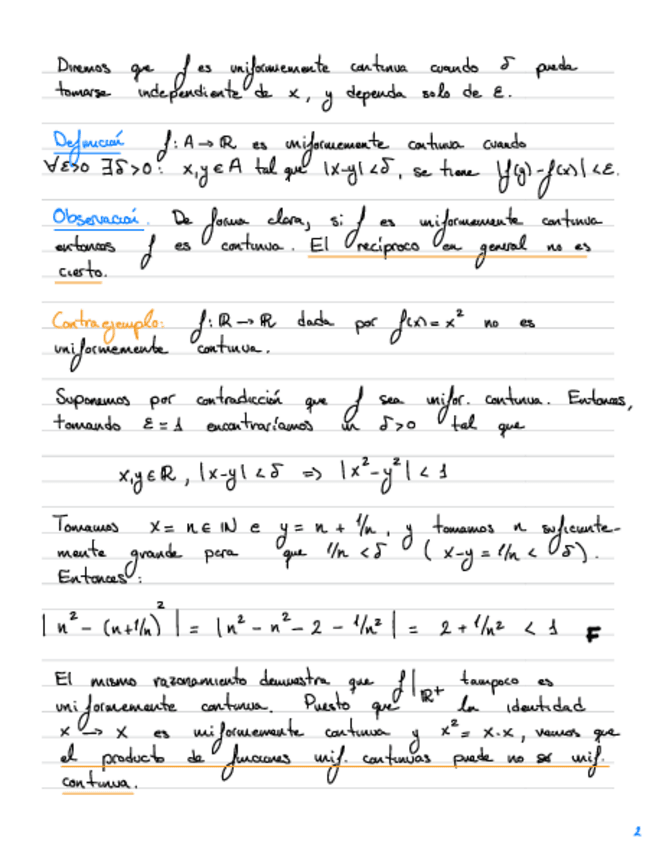 Diremos que f es uniformemente continua cuando δ pueda
tomarse independiente de x, y dependa solo de ε.
Definición f: A → ℝ es uniformemente continua cuando
∀ε>0 ∃δ>0: x,y ∈ A tal que |x-y| < δ, se tiene |f(y)-f(x)| < ε.
Observación. De forma clara, si f es uniformemente continua
entonces f es continua. El recíproco en general no es
cierto.
Contraejemplo: f: ℝ → ℝ dada por f(x) = x² no es
uniformemente continua.
Suponemos por contradicción que f sea unifor. continua. Entonces,
tomando ε = 1 encontraríamos un δ>0 tal que
x,y ∈ ℝ, |x-y| < δ => |x²-y²| < 1
Tomamos x = n ∈ ℕ e y = n + 1/n, y tomamos n suficiente-
mente grande para que 1/n < δ (x-y = 1/n < δ).
Entonces:
|n² - (n+1/n)²| = |n² - n² - 2 - 1/n²| = 2 + 1/n² < 1 F
El mismo razonamiento demuestra que f|ℝ⁺ tampoco es
uniformemente continua. Puesto que la identidad
x → x es uniformemente continua y x² = x·x, vemos que
el producto de funciones unif. continuas puede no ser unif.
continua.
2